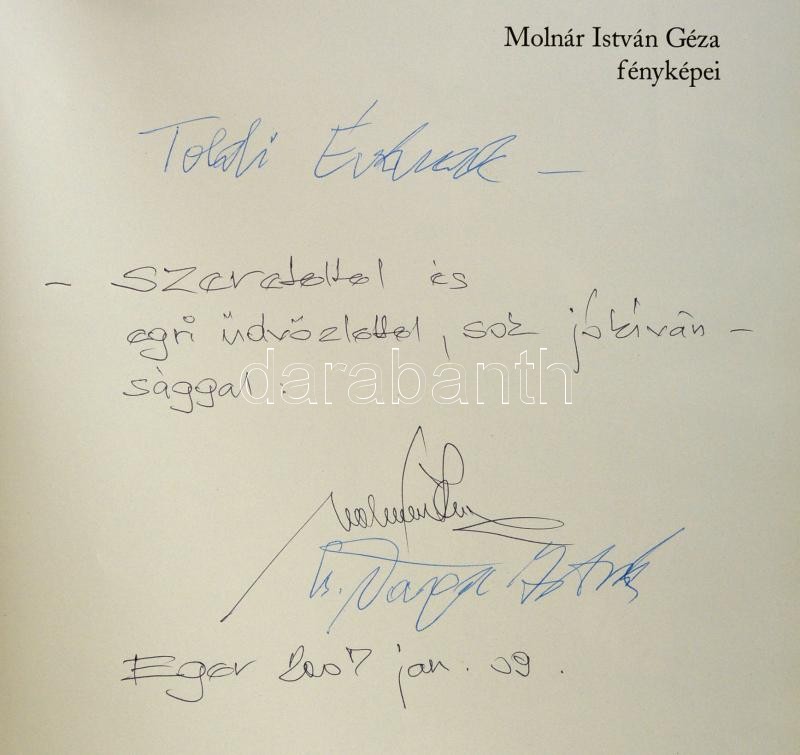 Molnár István Géza
fényképei
Toldi Évának —
— szeretettel és
egri üdvözlettel, sok jókíván –
sággal:
darabanth
Eger 2007 jan. 09.